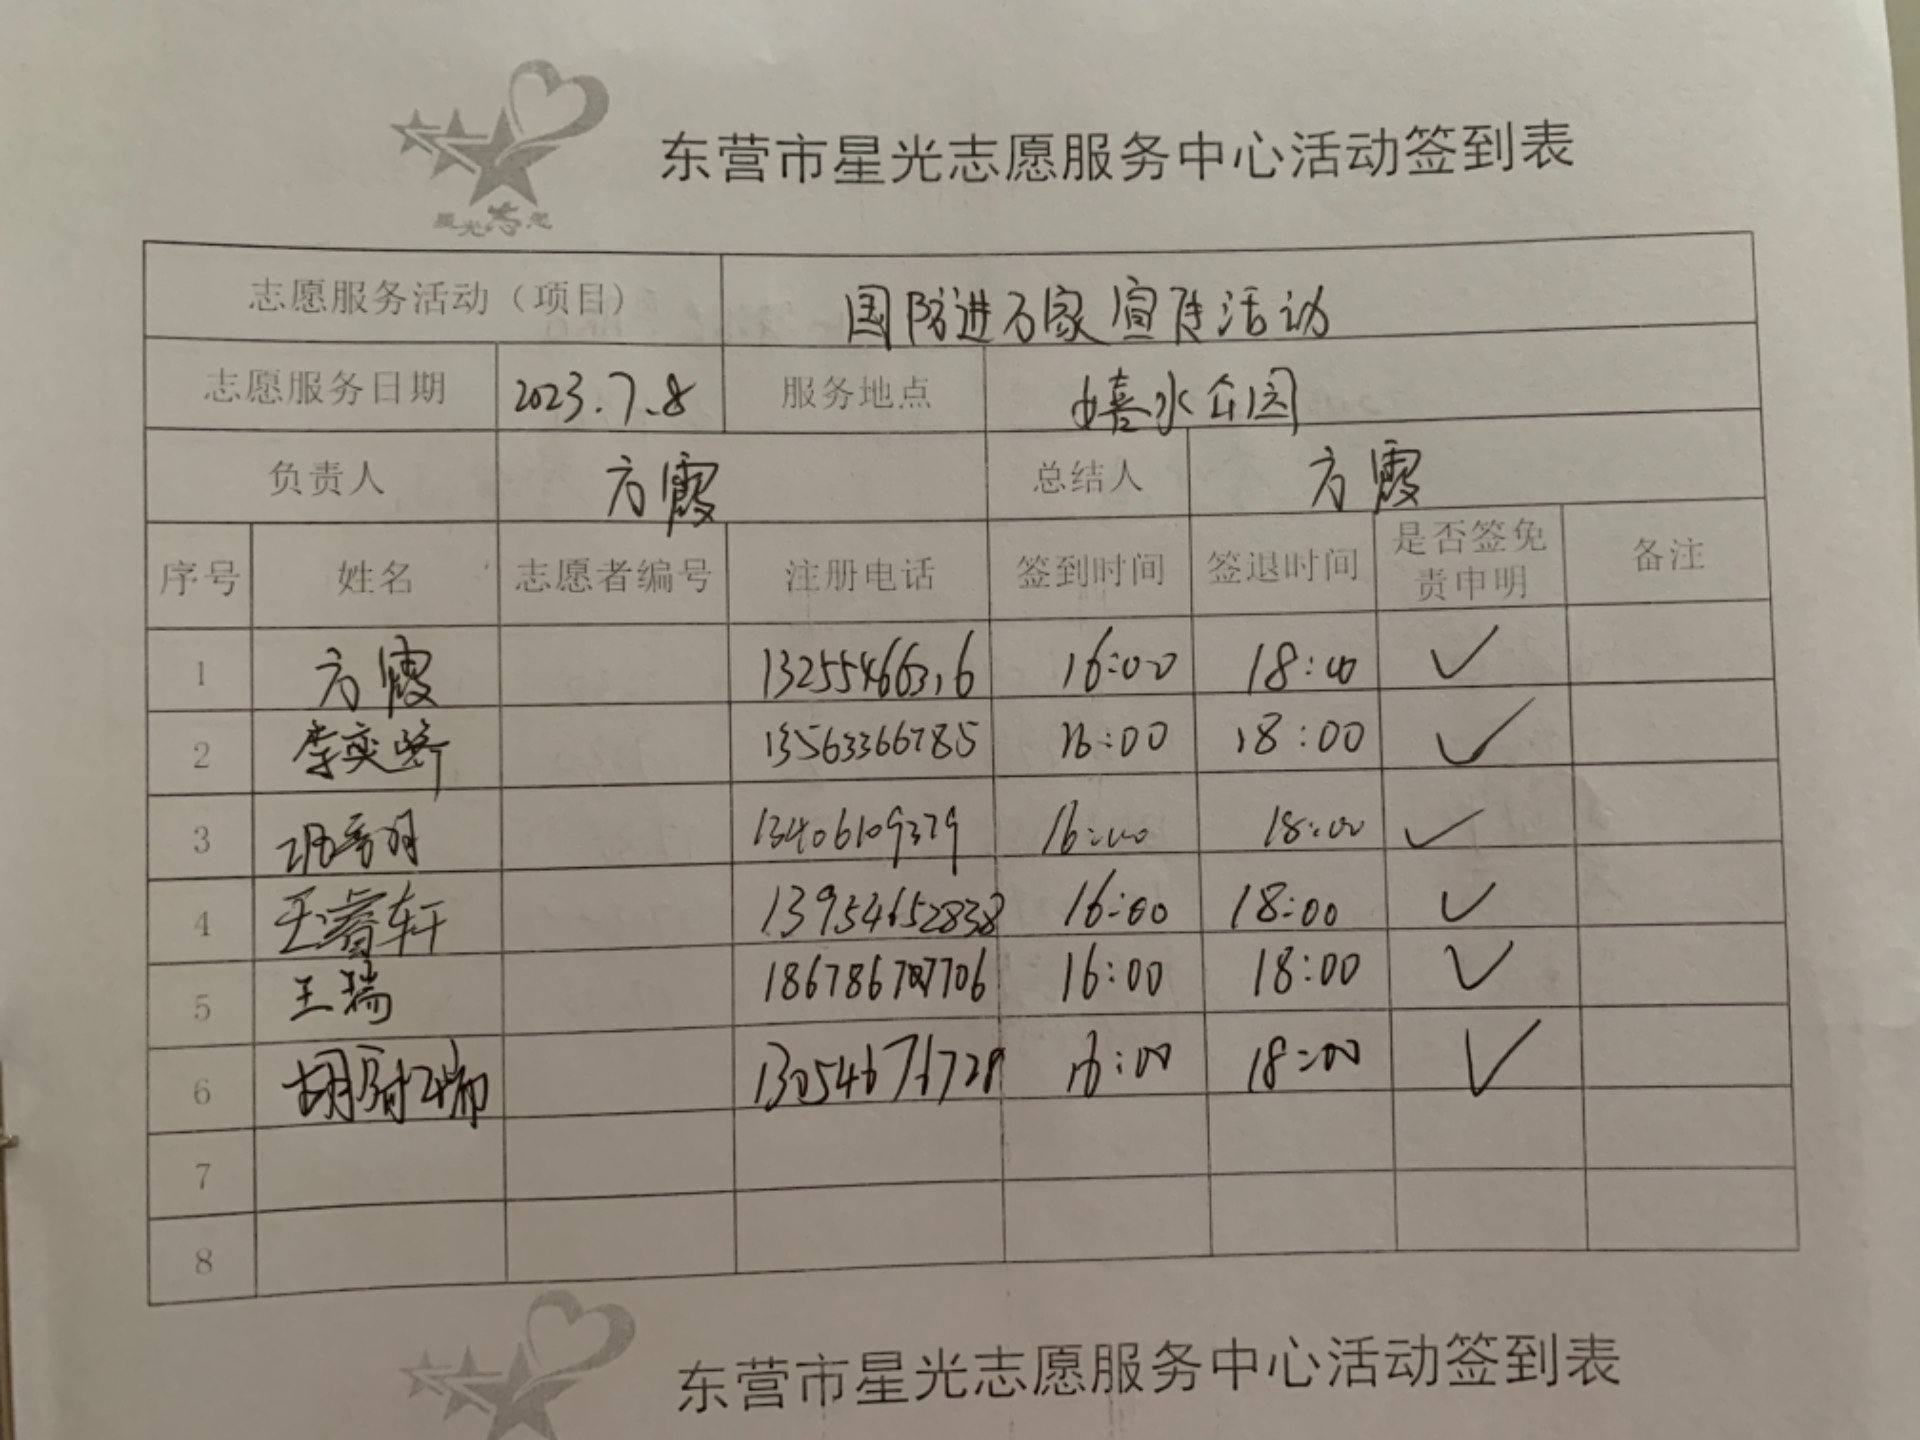 星光志愿
东营市星光志愿服务中心活动签到表
志愿服务活动（项目） 国防进万家宣传活动
志愿服务日期 2023.7.8 服务地点 嬉水公园
负责人 方霞 总结人 方霞
序号 姓名 志愿者编号 注册电话 签到时间 签退时间 是否签免责申明 备注
1 方霞 13255466316 16:00 18:00 ✓
2 李奕 13563366785 16:00 18:00 ✓
3 13406109379 16:00 18:00 ✓
4 王睿轩 13954652838 16:00 18:00 ✓
5 王瑞 16:00 18:00 ✓
6 胡 16:00 18:00 ✓
7
8
东营市星光志愿服务中心活动签到表